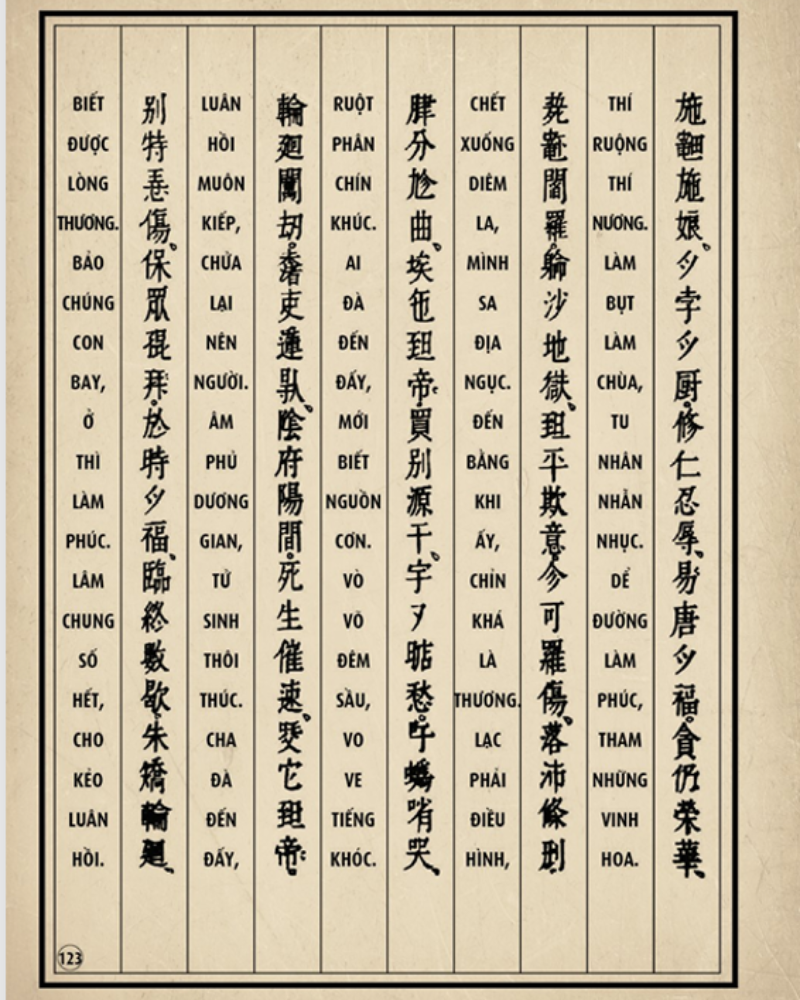 施施娘孛厨修仁忍辱易唐福貪仍荣華
THÍ RUỘNG THÍ NƯƠNG. LÀM BỤT LÀM CHÙA, TU NHÂN NHẪN NHỤC. DỂ ĐƯỜNG LÀM PHÚC, THAM NHỮNG VINH HOA.
閻羅沙地獄平欺意可羅傷落沛條刑
CHẾT XUỐNG DIÊM LA, MÌNH SA ĐỊA NGỤC. ĐẾN BẰNG KHI ẤY, CHỈN KHÁ LÀ THƯƠNG. LẠC PHẢI ĐIỀU HÌNH,
分尬曲埃帝買别源干愁哨哭
RUỘT PHÂN CHÍN KHÚC. AI ĐÀ ĐẾN ĐẤY, MỚI BIẾT NGUỒN CƠN. VÒ VÕ ĐÊM SẦU, VO VE TIẾNG KHÓC.
輪廻劫吏陰府陽間死生催速它帝
LUÂN HỒI MUÔN KIẾP, CHỬA LẠI NÊN NGƯỜI. ÂM PHỦ DƯƠNG GIAN, TỬ SINH THÔI THÚC. CHA ĐÀ ĐẾN ĐẤY,
别特傷保眾於時福臨終數歇朱矯輪廻
BIẾT ĐƯỢC LÒNG THƯƠNG. BẢO CHÚNG CON BAY, Ở THÌ LÀM PHÚC. LÂM CHUNG SỐ HẾT, CHO KẺO LUÂN HỒI.
123